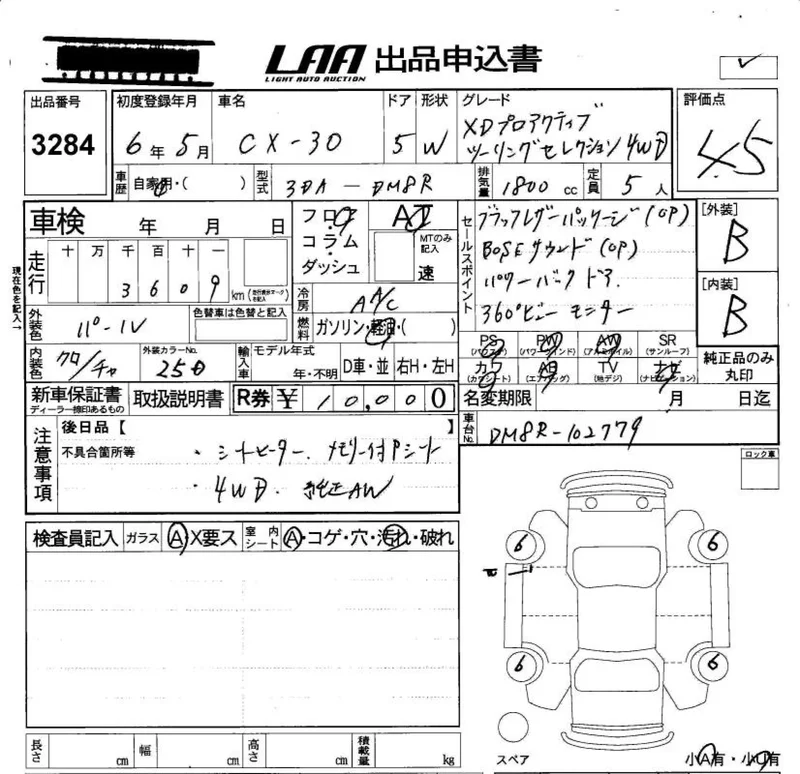 LAA 出品申込書
LIGHT AUTO AUCTION
出品番号 初度登録年月 車名 ドア 形状 グレード 評価点
3284 6年5月 CX-30 5 W XDプロアクティブ
ツーリングセレクション4WD
4.5
車歴 自家用・( ) 型式 3DA-DM8R 排気量 1800 cc 定員 5人
車検 年 月 日 フロア AT セールスポイント ブラックレザーパッケージ(OP) [外装]
コラム MTのみ記入 BOSEサウンド(OP) B
走行 十 万 千 百 十 一 ダッシュ 速 パワーバックドア.
3609 km (走行積算マークを記入) 冷房 A/C 360°ビューモニター [内装]
B
現在色を記入→
外装色 パール 色替車は色替と記入 燃料 ガソリン・軽油・( )
PS (パワステ) PW (パワーウインド) AW (アルミホイル) SR (サンルーフ) 純正品のみ
丸印
内装色 クロ/チャ 外装カラーNo. 25D 輸入車 モデル年式 年・不明 D車・並 右H・左H
カワ (カワシート) AB (エアバッグ) TV (地デジ) ナビ (ナビゲーション)
新車保証書 取扱説明書 R券 ¥10,000 名変期限 月 日迄
ディーラー捺印あるもの
注意事項 後日品【 】 車台No. DM8R-102779
不具合箇所等 ・シートヒーター. メモリー付Pシート
・4WD. 純正AW
ロック車
検査員記入 ガラス A・X要ス 室内シート A・コゲ・穴・汚れ・破れ
6 6
6 6
スペア 小A有・小U有
長さ cm 幅 cm 高さ cm 積載量 kg